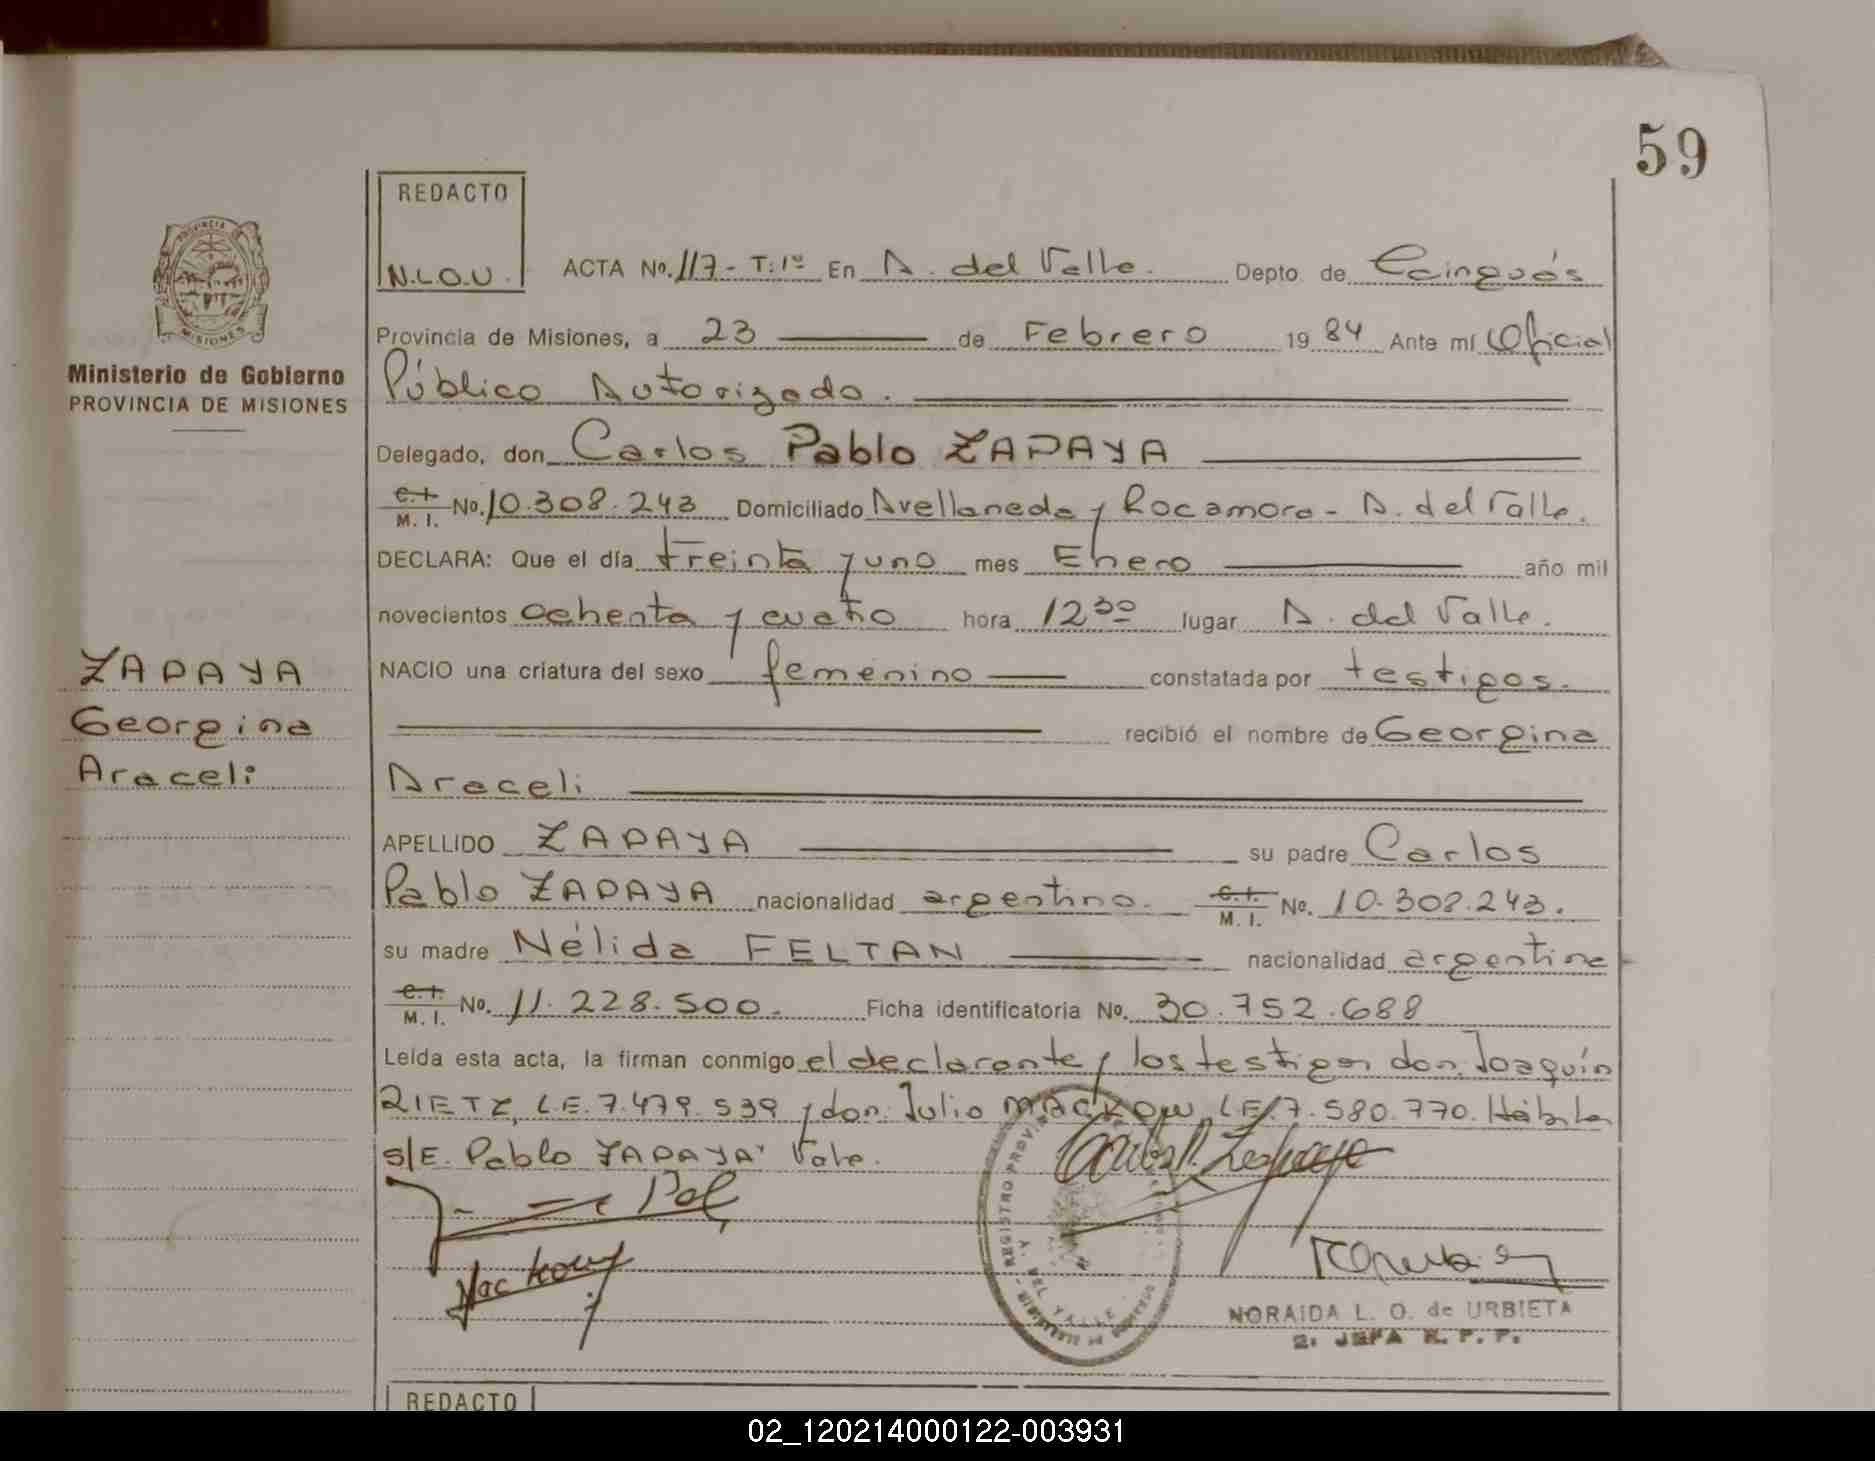 59
REDACTO
N.L.O.U.
ACTA No. 117- T:1º En A. del Valle. Depto. de Cainguás
Provincia de Misiones, a 23 de Febrero 1984 Ante mí Oficial
Público Autorizado.
Delegado, don Carlos Pablo ZAPAYA
C.I. M. I. No. 10.308.243 Domiciliado Avellaneda y Rocamora - A. del Valle.
DECLARA: Que el día treinta y uno mes Enero año mil
novecientos ochenta y cuatro hora 12 30 lugar A. del Valle.
NACIO una criatura del sexo femenino constatada por testigos.
recibió el nombre de Georgina
Araceli
APELLIDO ZAPAYA su padre Carlos
Pablo ZAPAYA nacionalidad argentino. C.I. M. I. No. 10.308.243.
su madre Nélida FELTAN nacionalidad argentina
C.I. M. I. No. 11.228.500. Ficha identificatoria No. 30.752.688
Leída esta acta, la firman conmigo el declarante y los testigos don Joaquín
RIETZ, L.E. 7.479.539 y don Julio MACKOW, L.E. 7.580.770. Hábiles
S/E. Pablo ZAPAYA" Vale.
Mackow j
NORAIDA L. O. de URBIETA
2. JEFA R. P. P.
PROVINCIA DE
MISIONES
Ministerio de Gobierno
PROVINCIA DE MISIONES
ZAPAYA
Georgina
Araceli
REGISTRO PROVIN
DEL VALLE
REDACTO
02_120214000122-003931